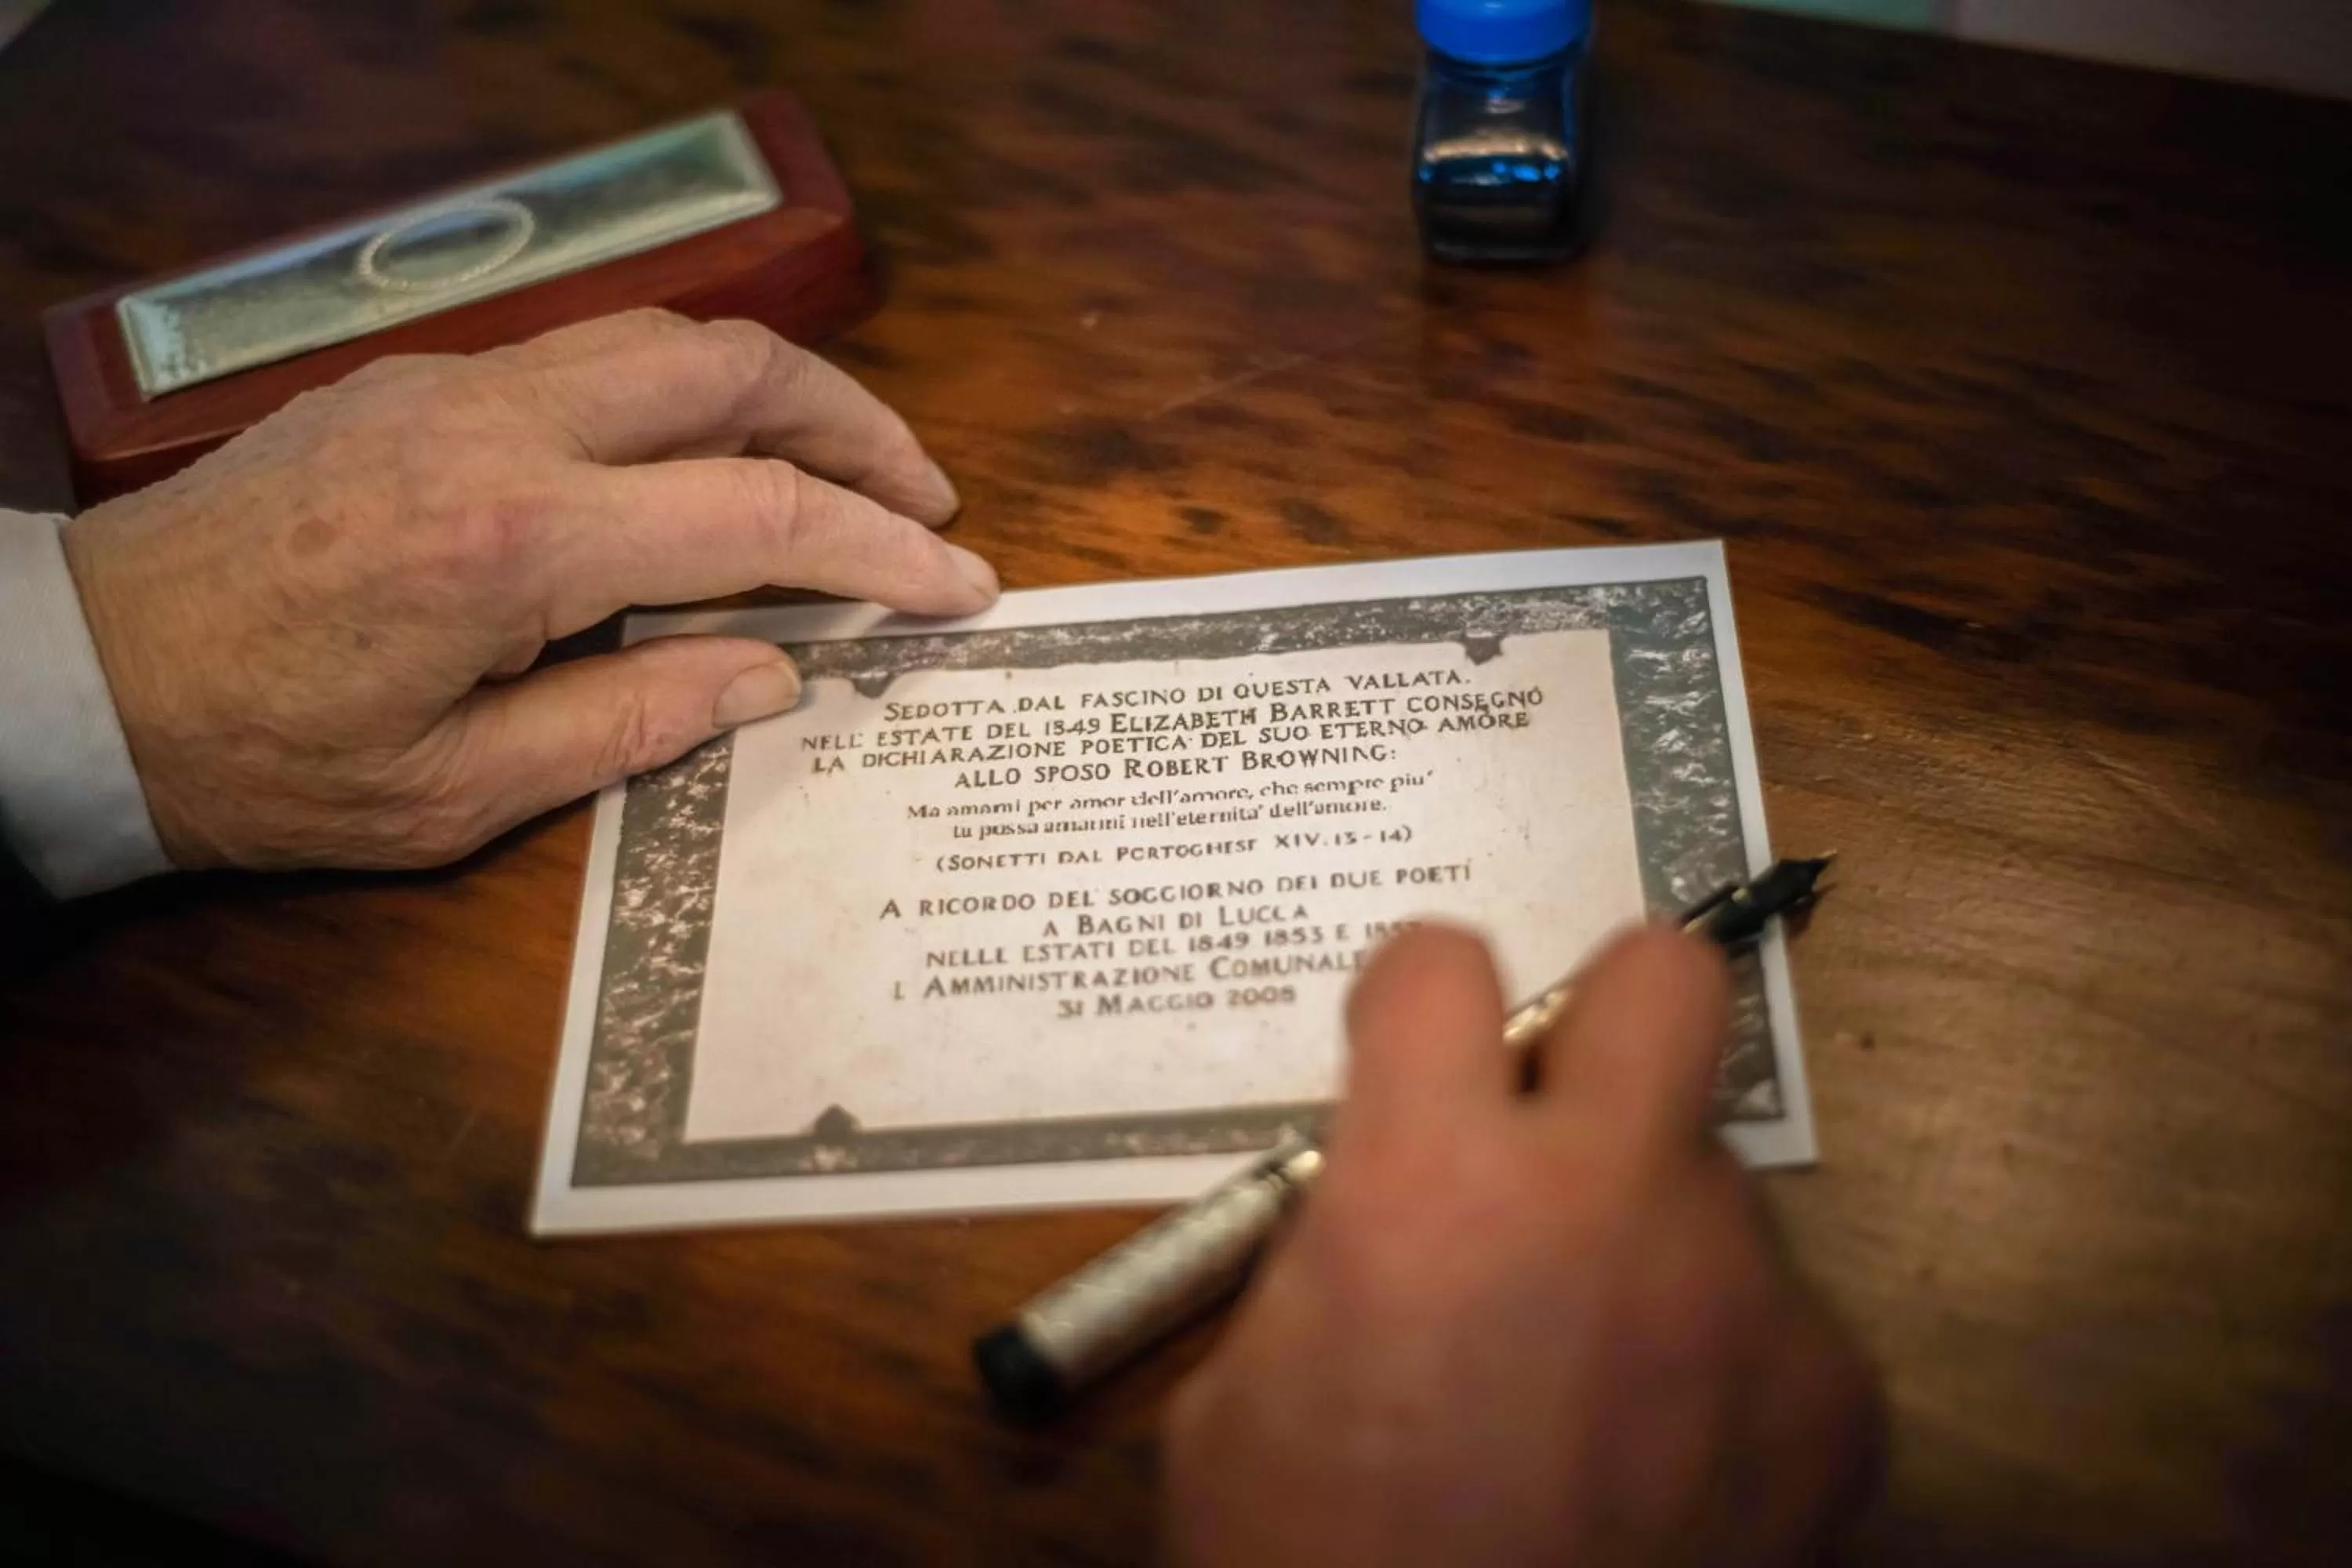 SEDOTTA DAL FASCINO DI QUESTA VALLATA.
NELL' ESTATE DEL 1849 ELIZABETH BARRETT CONSEGNÓ
LA DICHIARAZIONE POETICA DEL SUO ETERNO AMORE
ALLO SPOSO ROBERT BROWNING:
Ma amami per amor dell'amore, che sempre piu'
tu possa amarmi nell'eternita' dell'amore.
(SONETTI DAL PORTOGHESE XIV. 13-14)
A RICORDO DEL SOGGIORNO DEI DUE POETI
A BAGNI DI LUCCA
NELLE ESTATI DEL 1849 1853 E
L AMMINISTRAZIONE COMUNALE
31 MAGGIO 2008